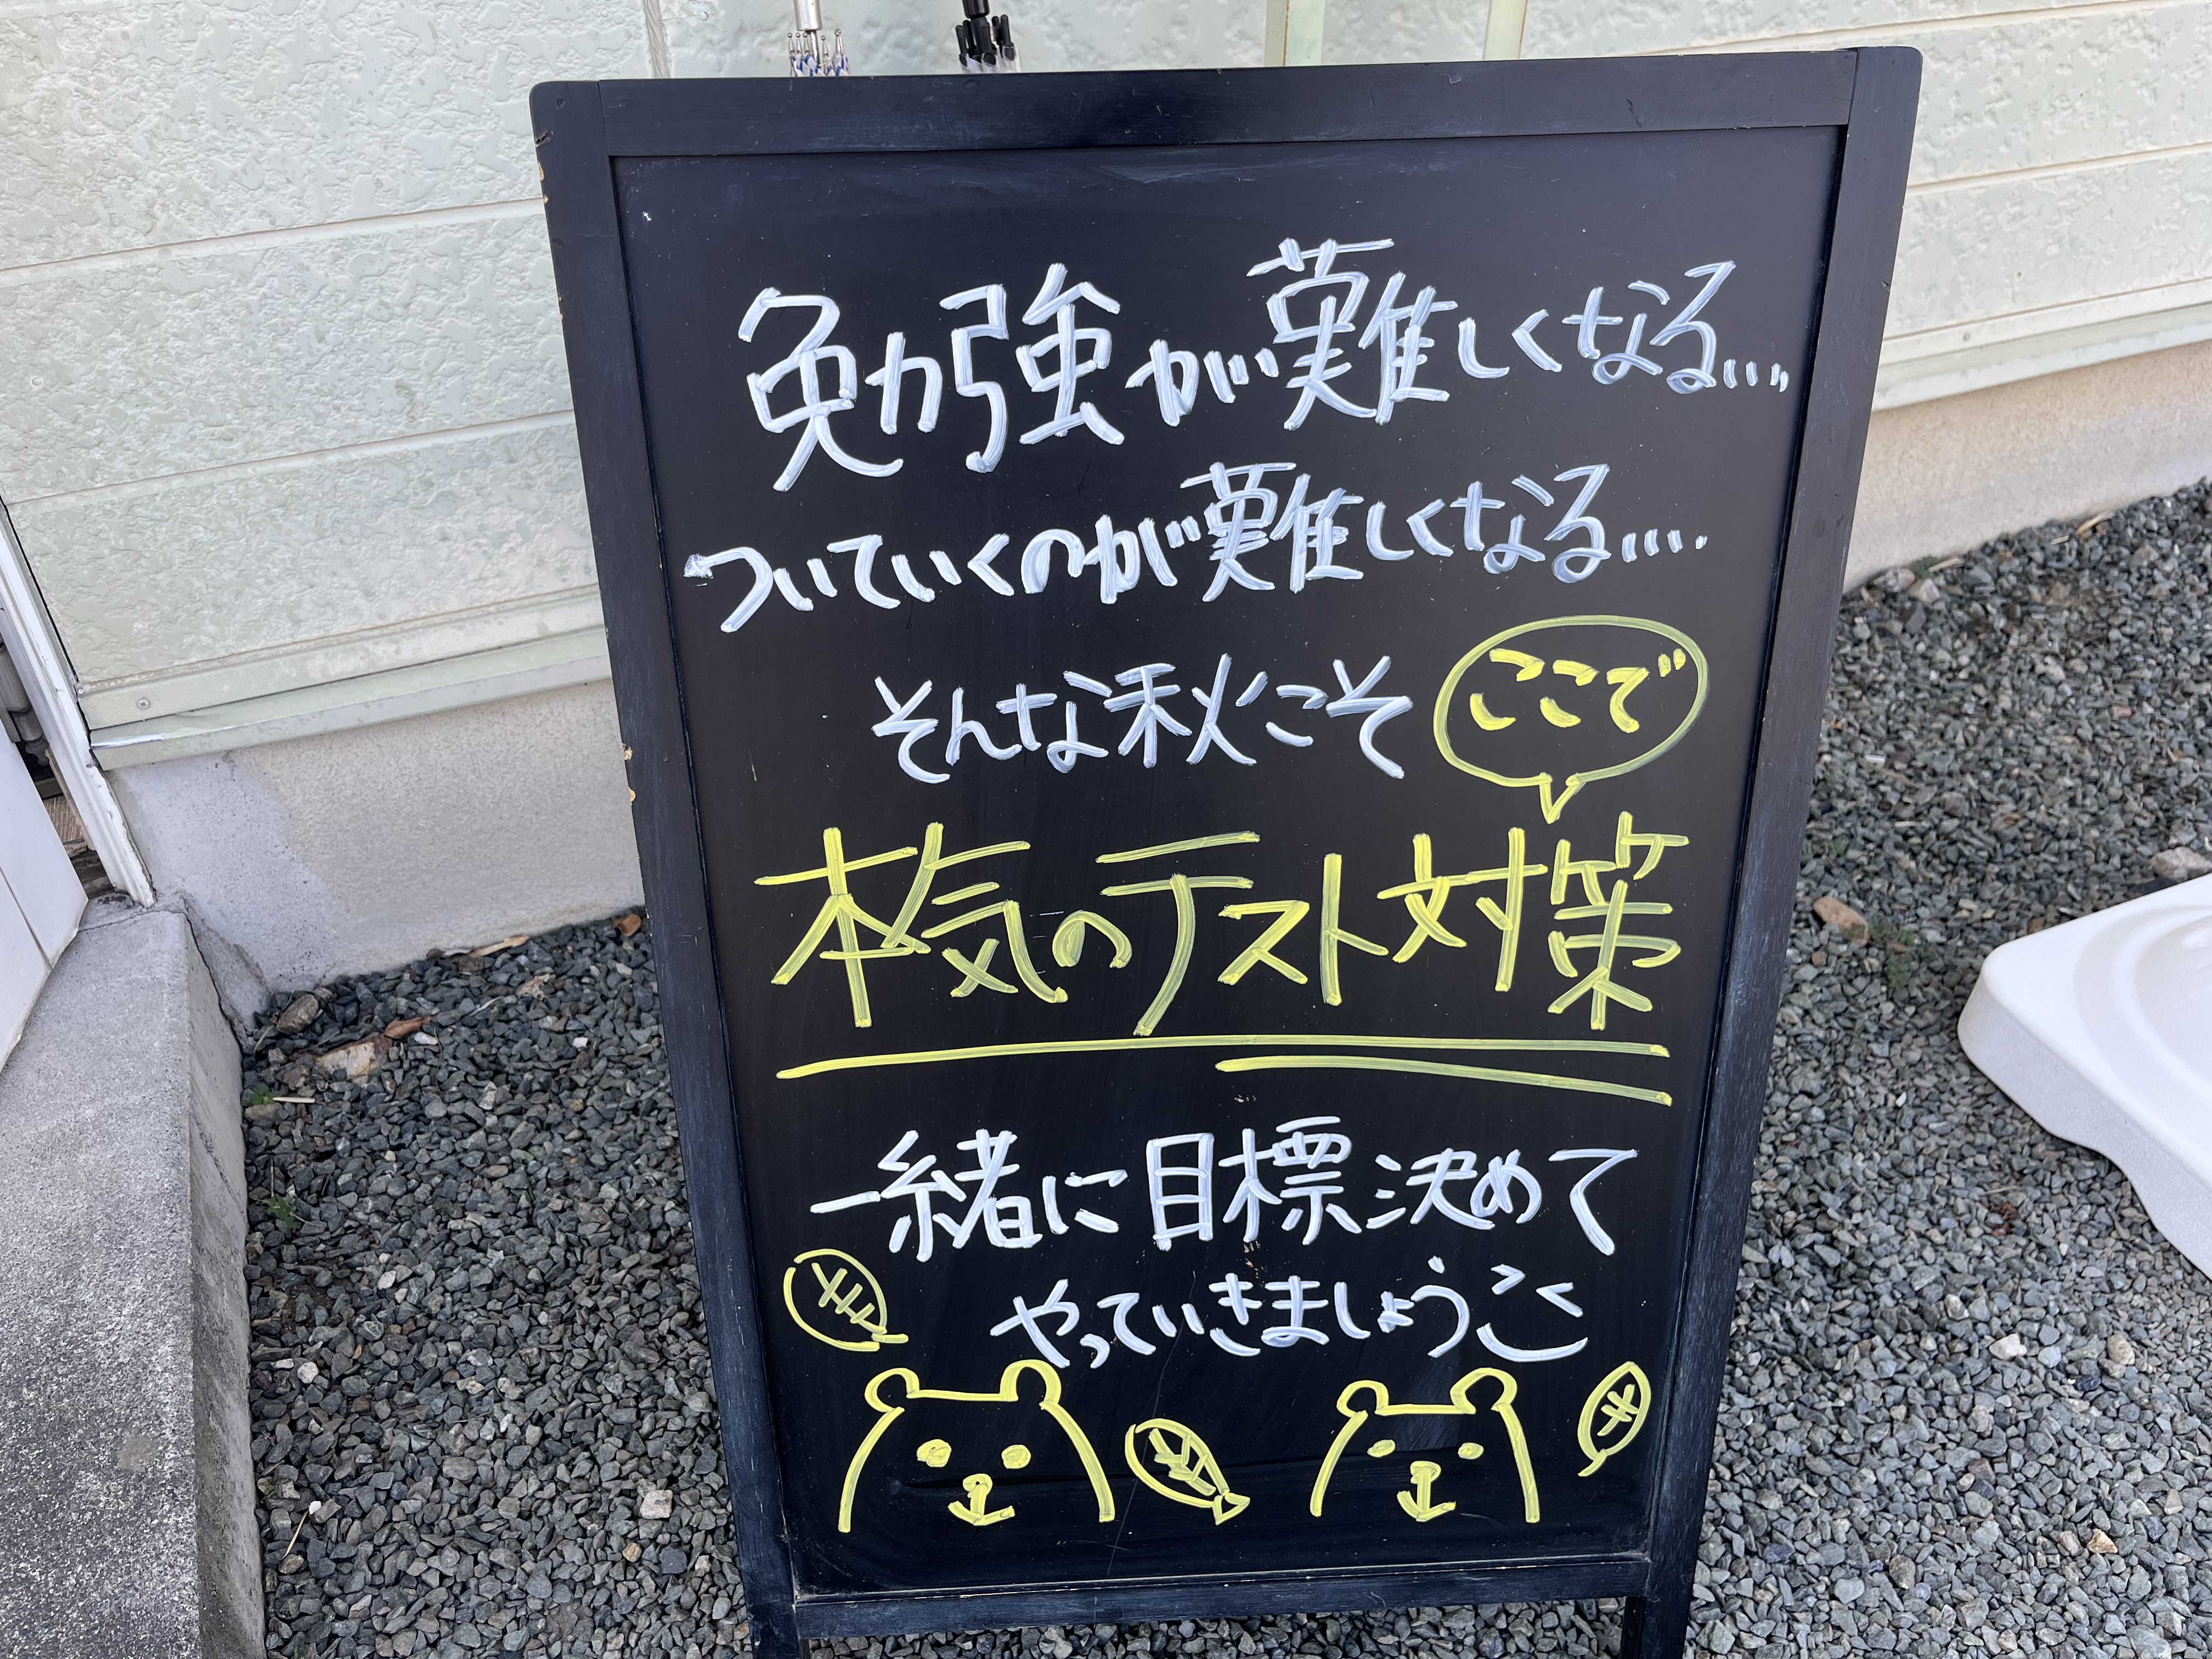 勉強が難しくなる...
ついていくのが難しくなる....
そんな秋こそ ここで
本気のテスト対策
一緒に目標決めて
やっていきましょう